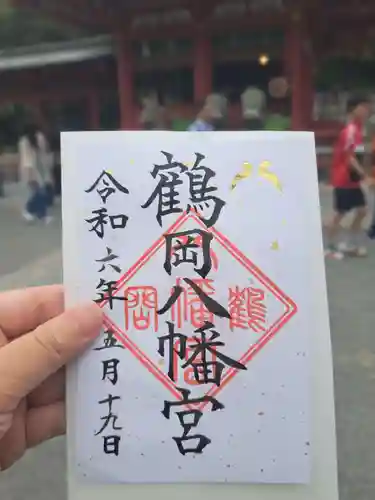 鶴岡八幡宮
令和六年五月十九日
鶴岡八幡宮